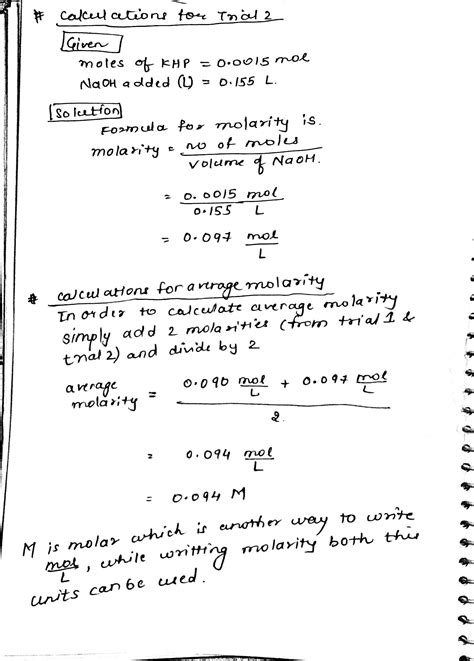 # calculations for Trial 2
Given
moles of KHP = 0.0015 mol
NaOH added (L) = 0.155 L.
Solution
Formula for molarity is.
molarity = no of moles / volume of NaOH.
= 0.0015 mol / 0.155 L
= 0.097 mol / L
# calculations for average molarity
In order to calculate average molarity
simply add 2 molarities (from trial 1 &
trial 2) and divide by 2
average molarity = 0.090 mol/L + 0.097 mol/L / 2.
= 0.094 mol/L
= 0.094 M
M is molar which is another way to write
mol/L, while writting molarity both this
units can be used.